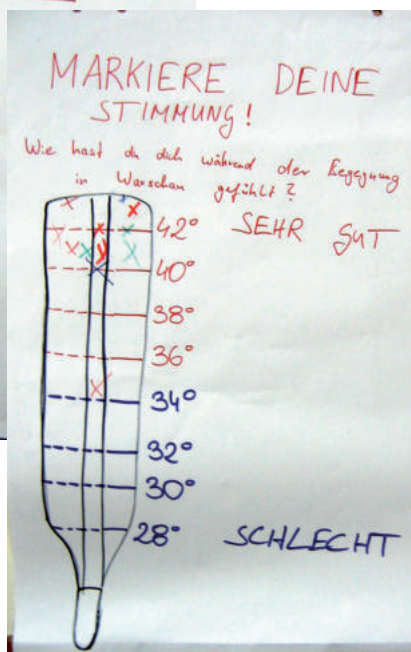 MARKIERE DEINE
STIMMUNG!
Wie hast du dich während der Begegnung
in Warschau gefühlt?
42° SEHR GUT
40°
38°
36°
34°
32°
30°
28° SCHLECHT